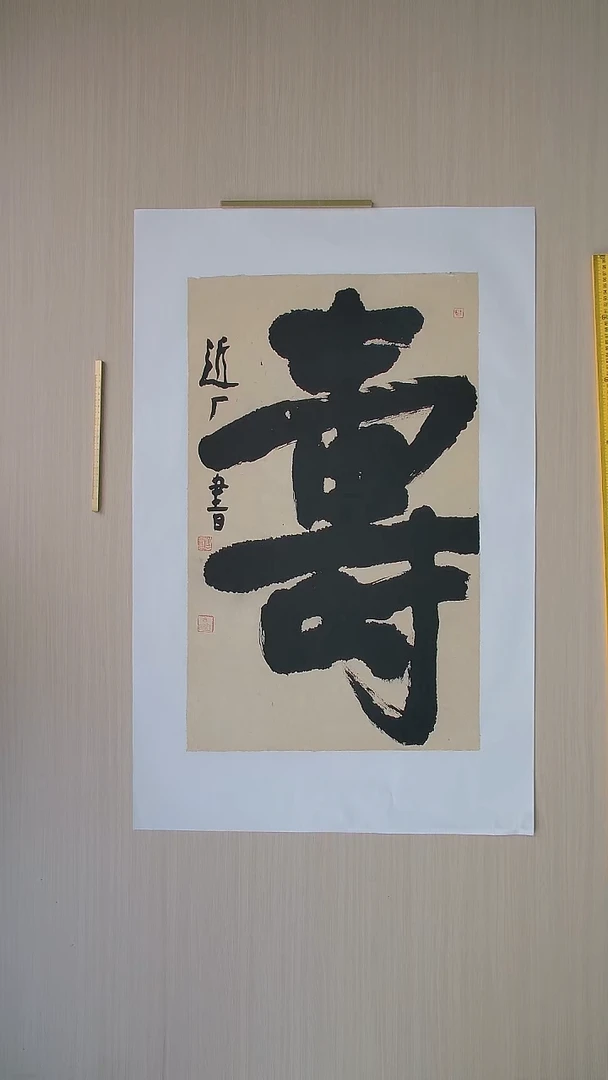 壽
近厂書